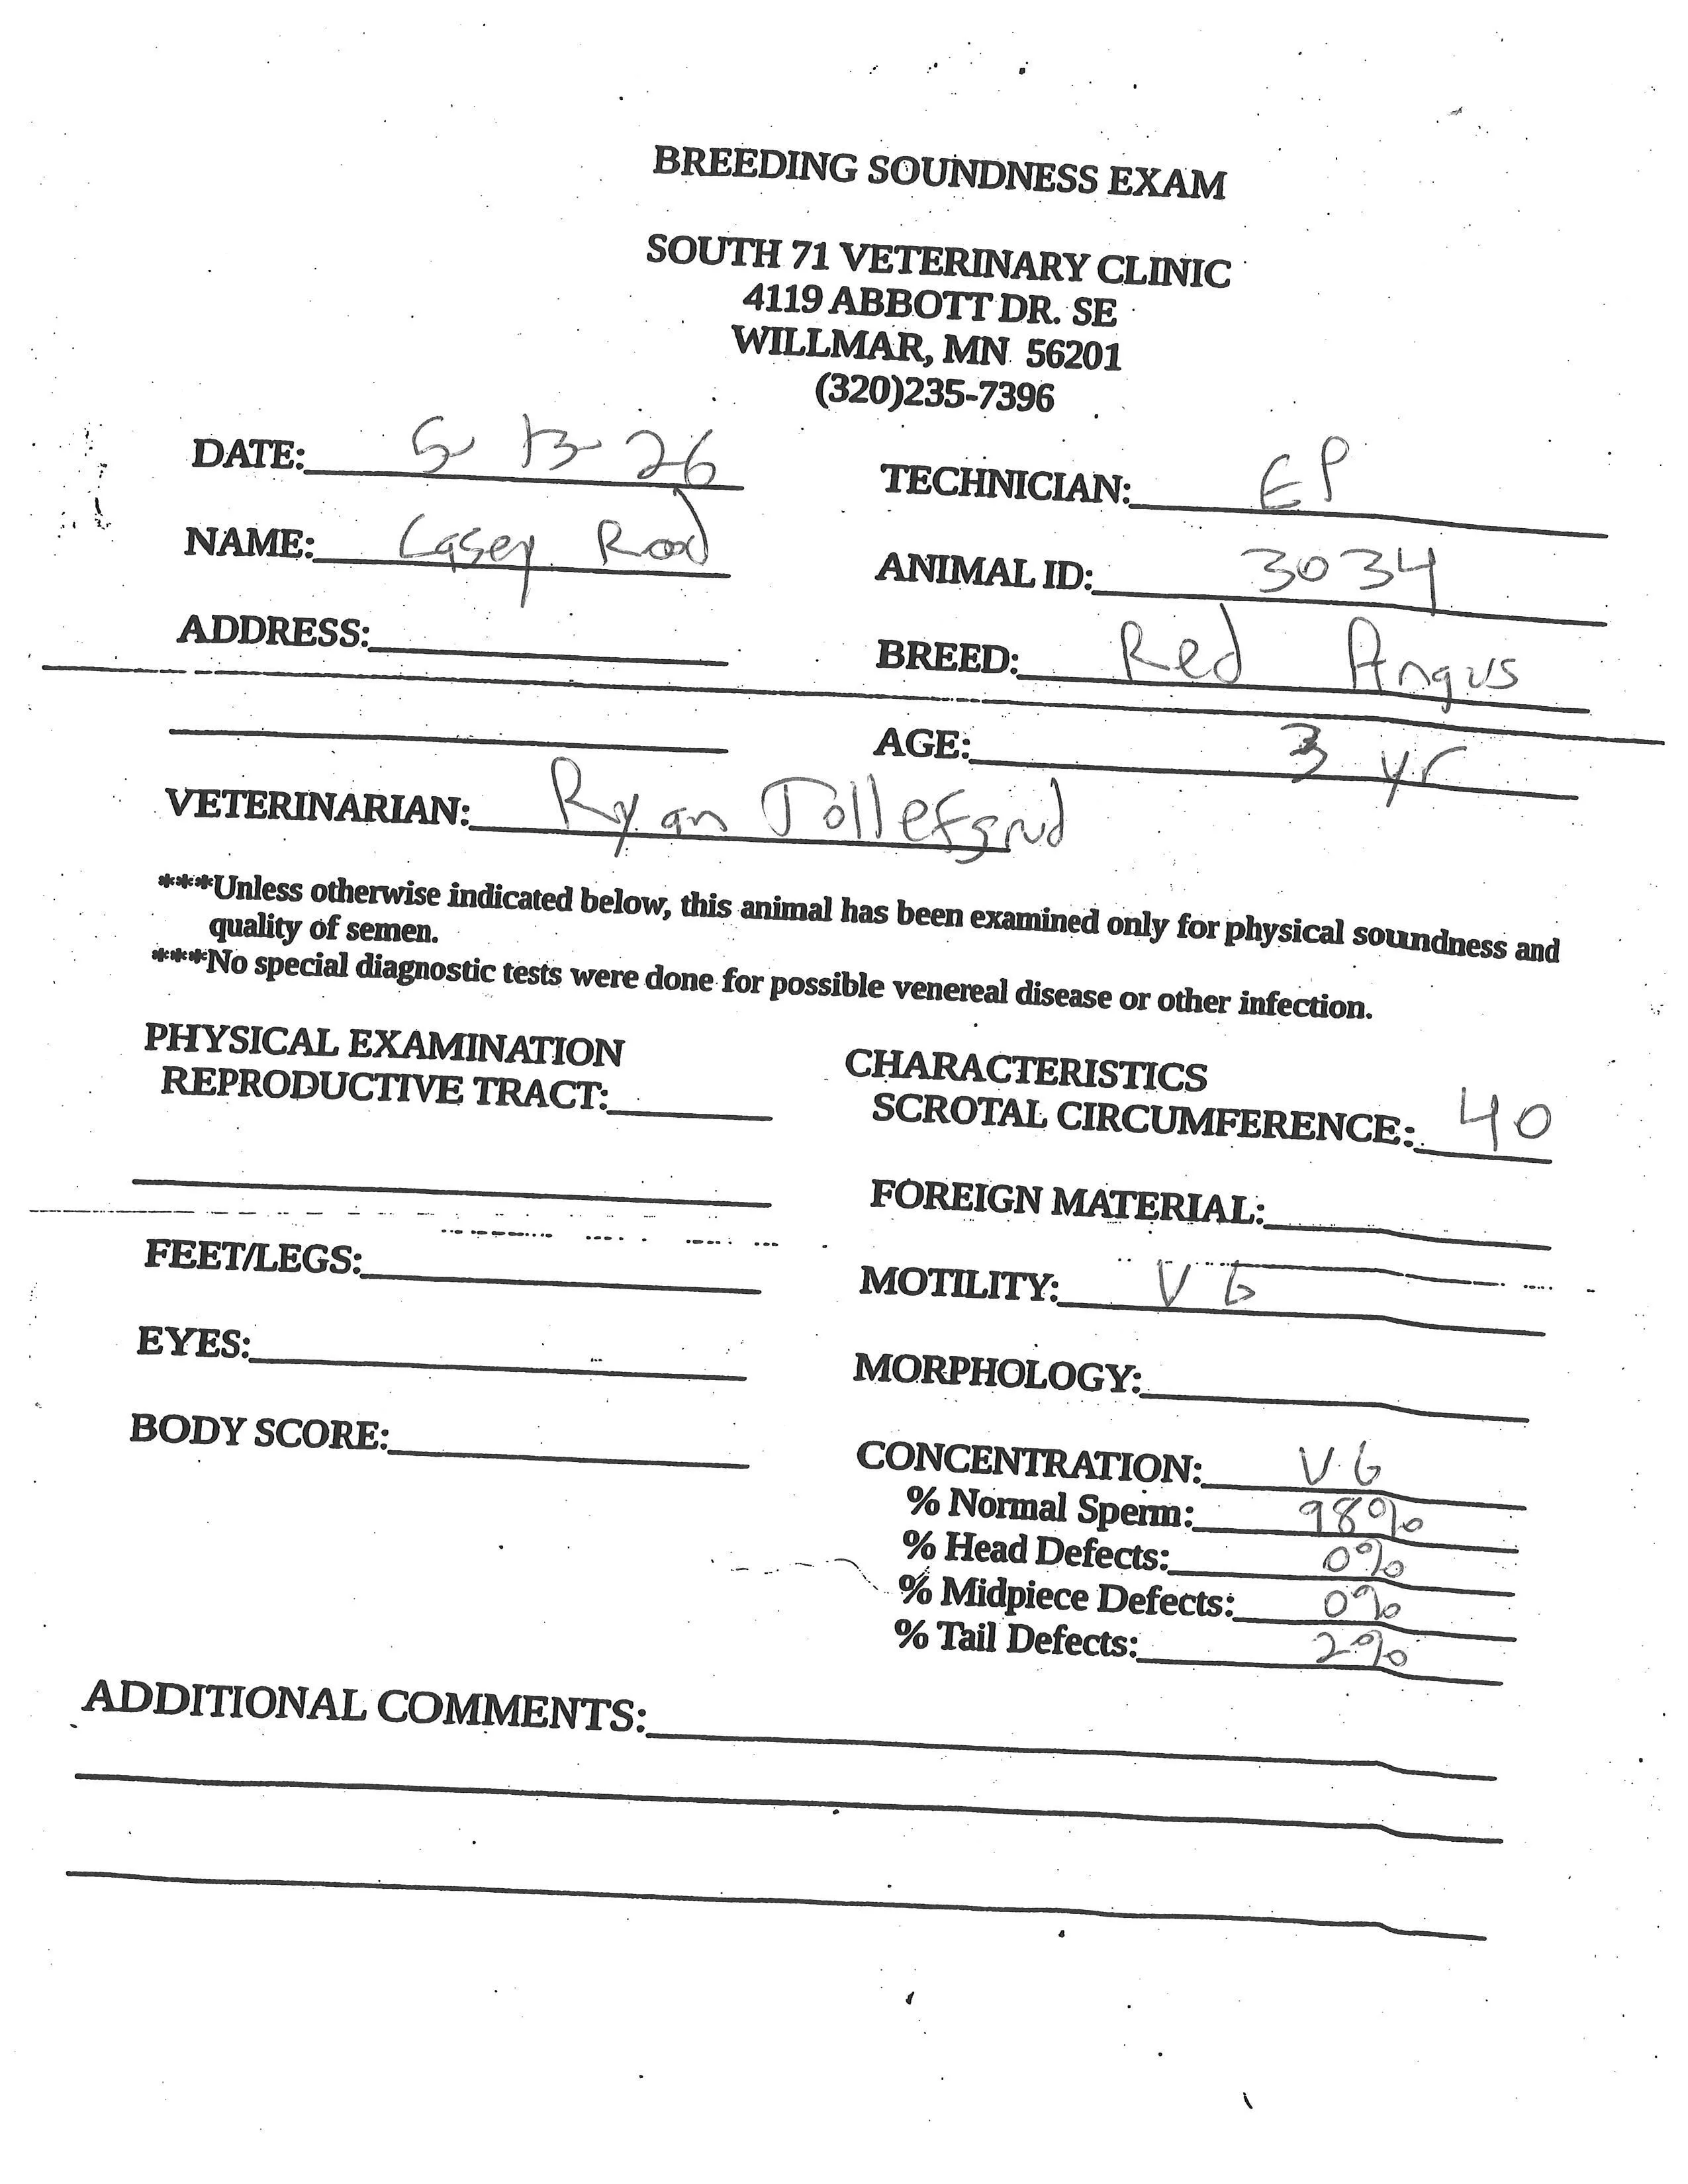 BREEDING SOUNDNESS EXAM
SOUTH 71 VETERINARY CLINIC
4119 ABBOTT DR. SE
WILLMAR, MN 56201
(320)235-7396
DATE: 5-13-26
TECHNICIAN: EP
NAME: Casey Rood
ANIMAL ID: 3034
ADDRESS:
BREED: Red Angus
AGE: 3 yr
VETERINARIAN: Ryan
***Unless otherwise indicated below, this animal has been examined only for physical soundness and
quality of semen.
***No special diagnostic tests were done for possible venereal disease or other infection.
PHYSICAL EXAMINATION
REPRODUCTIVE TRACT:
FEET/LEGS:
EYES:
BODY SCORE:
CHARACTERISTICS
SCROTAL CIRCUMFERENCE: 40
FOREIGN MATERIAL:
MOTILITY: VG
MORPHOLOGY:
CONCENTRATION: VG
% Normal Sperm: 98%
% Head Defects: 0%
% Midpiece Defects: 0%
% Tail Defects: 2%
ADDITIONAL COMMENTS: